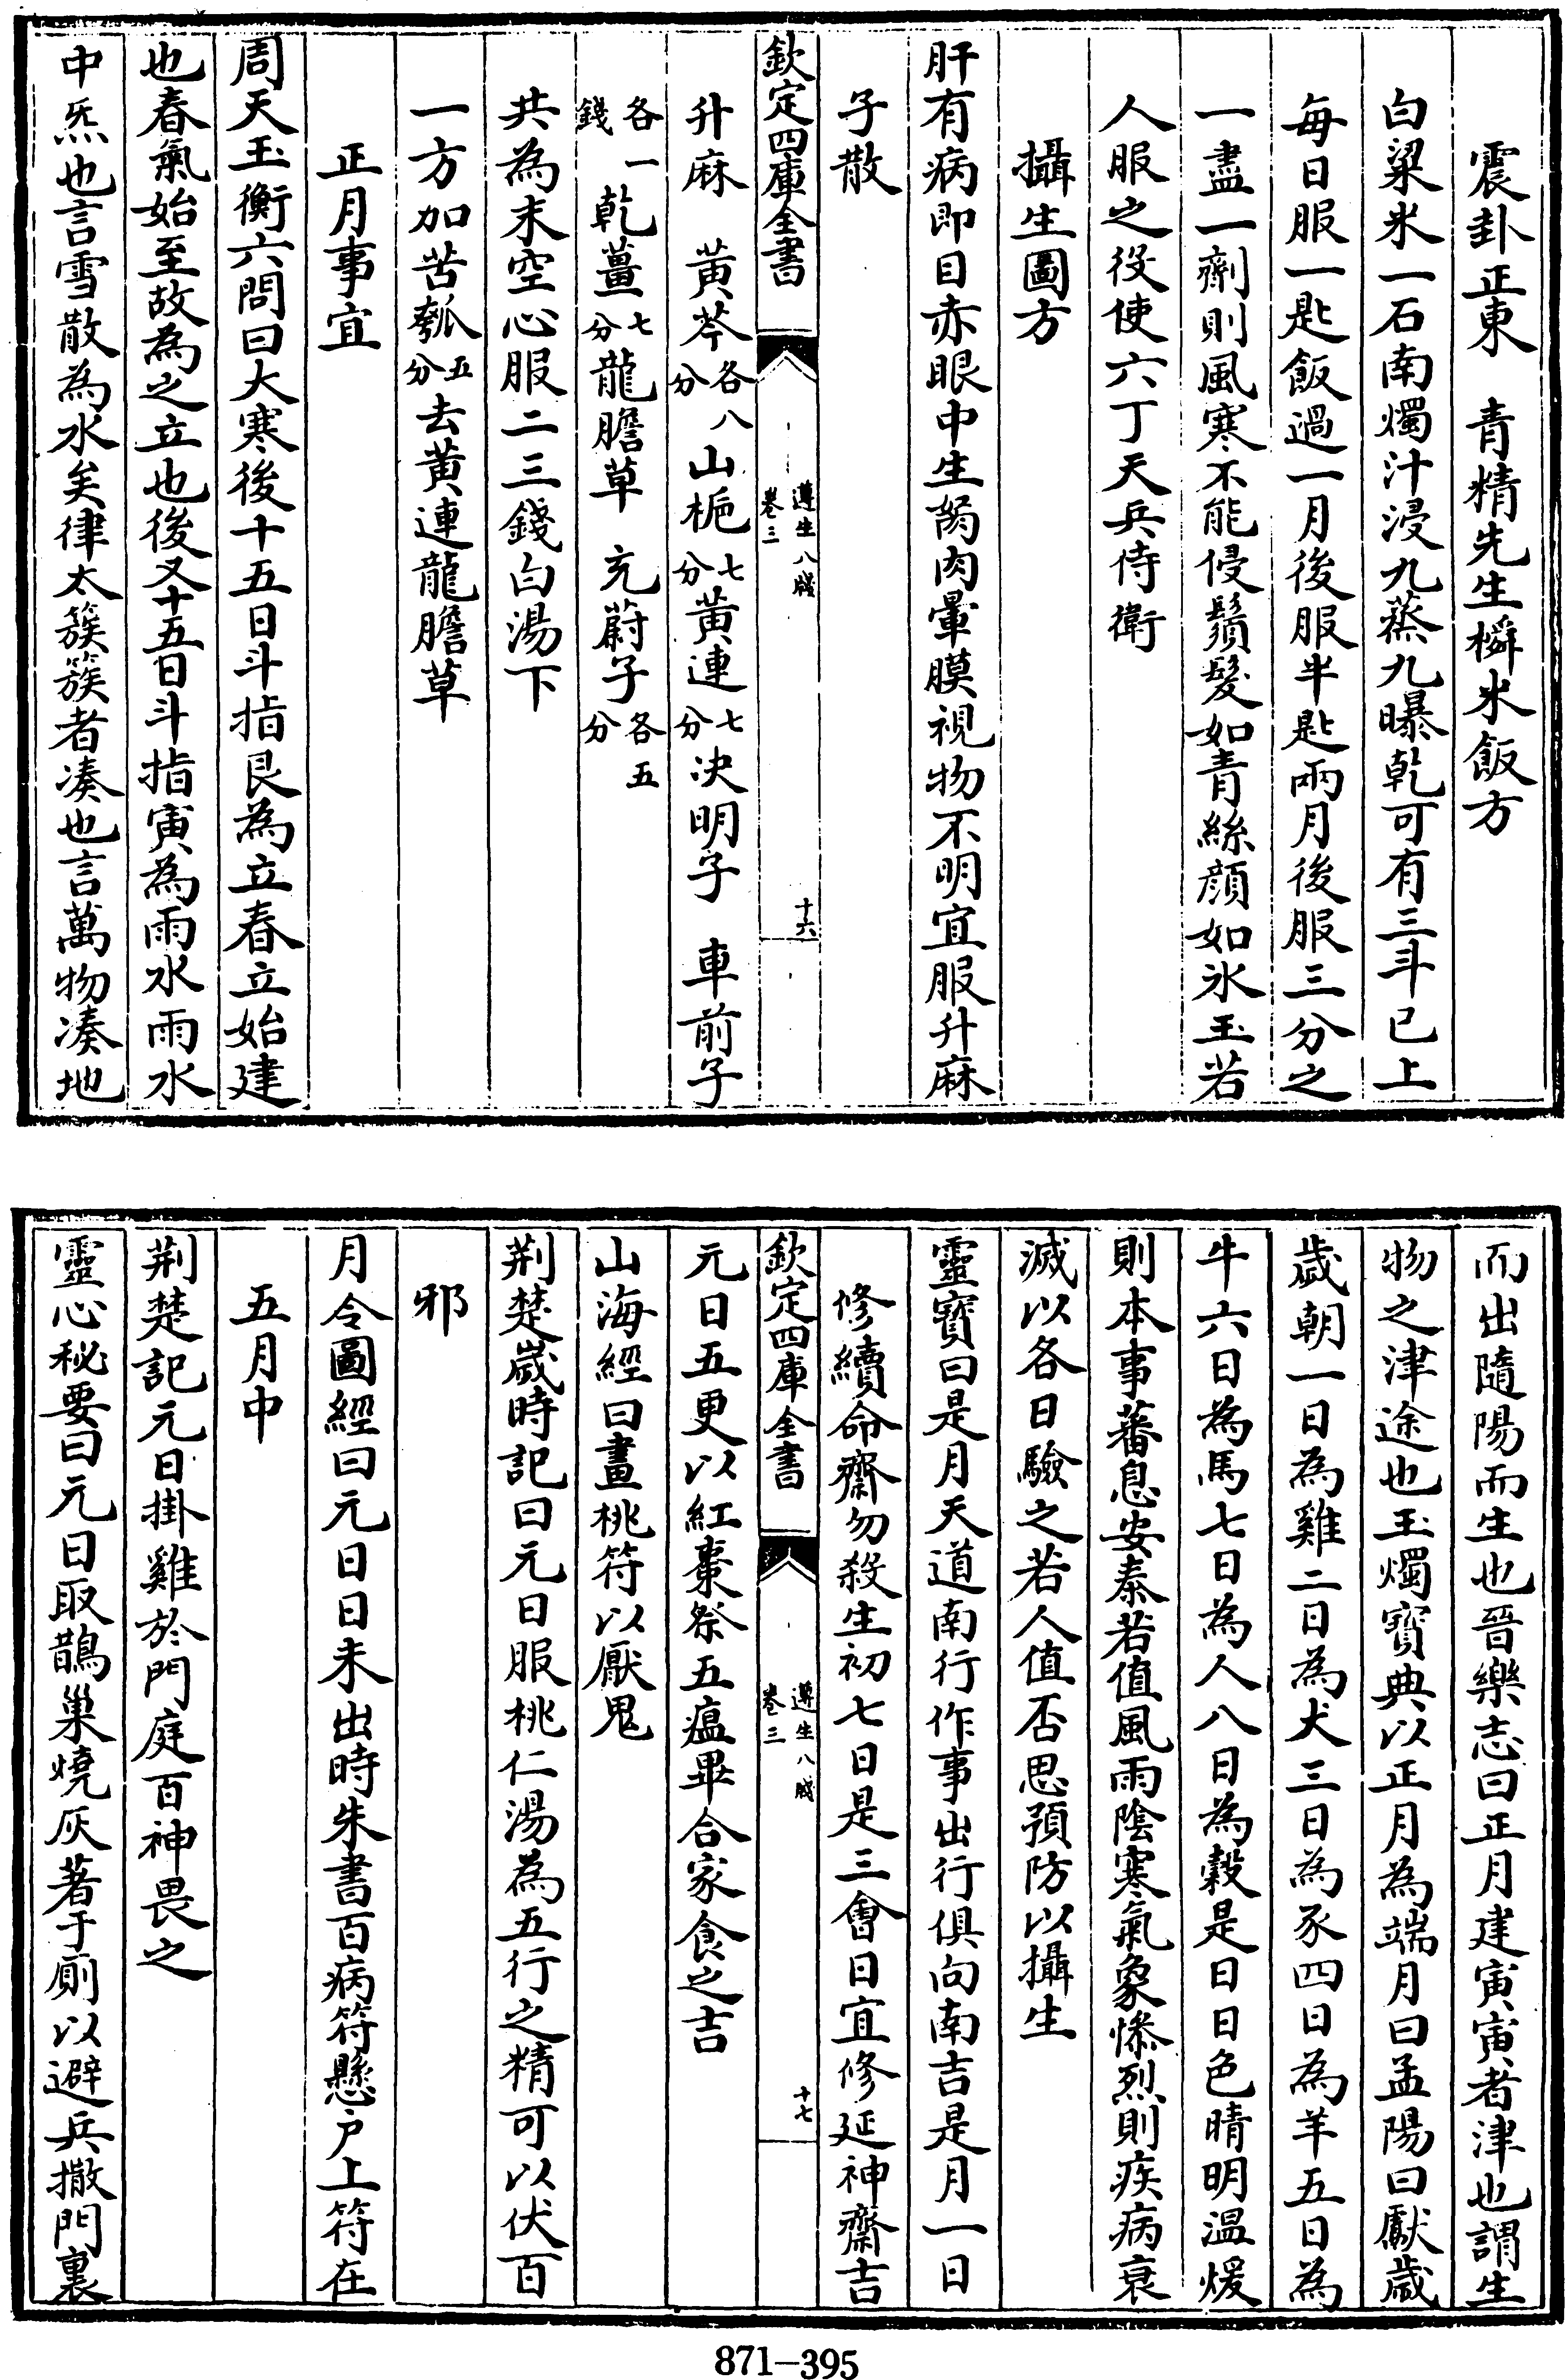 震卦正東　青精先生𥻦米飯方
白粱米一石南燭汁浸九蒸九曝乾可有三斗已上
每日服一匙飯過一月後服半匙兩月後服三分之
一盡一劑則風寒不能侵鬚髮如青絲顔如氷玉若
人服之役使六丁天兵侍衛
攝生圖方
肝有病即目赤眼中生胬肉暈膜視物不明宜服升麻
子散
欽定四庫全書
遵生八牋
卷三
十六
升麻　黄芩各八分山梔七分黄連七分决明子　車前子
各一錢乾薑七分龍膽草　充蔚子各五分
共為末空心服二三錢白湯下
一方加苦瓠五分去黄連龍膽草
正月事宜
周天玉衡六間曰大寒後十五日斗指艮為立春立始建
也春氣始至故為之立也後又十五日斗指寅為雨水雨水
中炁也言雪散為水矣律太簇簇者凑也言萬物凑地
而出隨陽而生也晉樂志曰正月建寅寅者津也謂生
物之津途也玉燭寶典以正月為端月曰孟陽曰獻歲
歲朝一日為雞二日為犬三日為豕四日為羊五日為
牛六日為馬七日為人八日為穀是日日色晴明温煖
則本事蕃息安泰若值風雨陰寒氣象慘烈則疾病衰
滅以各日驗之若人值否思預防以攝生
靈寶曰是月天道南行作事出行俱向南吉是月一日
修續命齋勿殺生初七日是三會日宜修延神齋吉
欽定四庫全書
遵生八牋
卷三
十七
元日五更以紅棗祭五瘟畢合家食之吉
山海經曰畫桃符以厭鬼
荆楚嵗時記曰元日服桃仁湯為五行之精可以伏百
邪
月令圖經曰元日日未出時朱書百病符懸户上符在
五月中
荆楚記元日掛雞於門庭百神畏之
靈心秘要曰元日取鵲巢燒灰著于厠以避兵撒門裏
871-395